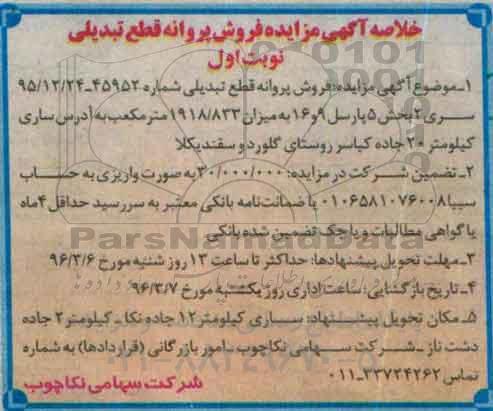 خلاصه آگهی مزایده فروش پروانه قطع تبدیلی
نوبت اول
۱ـ موضوع آگهی مزایده: فروش پروانه قطع تبدیلی شماره ۴۵۹۵۲ـ۹۵/۱۲/۲۴
سری ۲ بخش ۵ پارسل ۹ و ۱۶ به میزان ۱۹۱۸/۸۳۳ متر مکعب به آدرس ساری
کیلومتر ۲۰ جاده کیاسر روستای گلورد و سفتدیکلا
۲ـ تضمین شرکت در مزایده: ۳۰/۰۰۰/۰۰۰ به صورت واریزی به حساب
سیبا ۰۱۰۶۵۸۱۰۷۶۰۰۸ یا ضمانت‌نامه بانکی معتبر به سررسید حداقل ۴ ماه
یا گواهی مطالبات و یا چک تضمین شده بانکی
ParsNamadData
۳ـ مهلت تحویل پیشنهادها: حداکثر تا ساعت ۱۳ روز شنبه مورخ ۹۶/۳/۶
۴ـ تاریخ بازگشایی: ساعت اداری روز یکشنبه مورخ ۹۶/۳/۷
۵ـ مکان تحویل پیشنهاد: ساری کیلومتر ۱۲ جاده نکا ـ کیلومتر ۲ جاده
دشت ناز ـ شرکت سهامی نکاچوب ـ امور بازرگانی (قراردادها) به شماره
تماس ۳۳۷۲۴۲۶۲ـ۰۱۱
شرکت سهامی نکاچوب